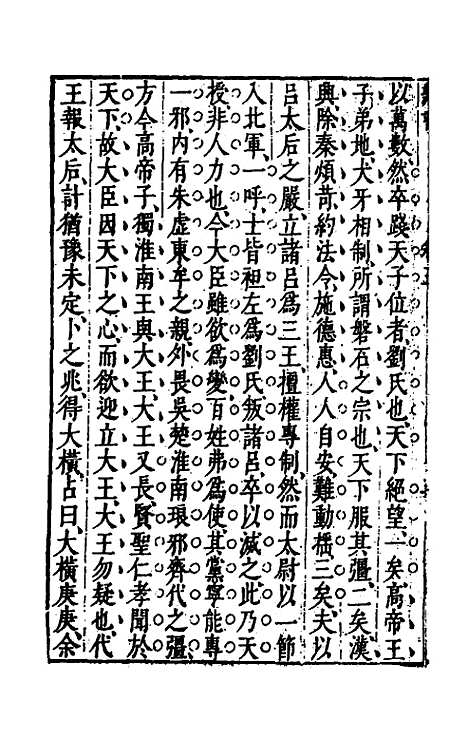 以萬數然卒踐天子位者劉氏也天下絕望一矣高帝王
子弟地犬牙相制所謂磐石之宗也天下服其彊二矣漢
興除秦煩苛約法令施德惠人人自安難動搖三矣夫以
呂太后之嚴立諸呂爲三王擅權專制然而太尉以一節
入北軍一呼士皆袒左爲劉氏叛諸呂卒以滅之此乃天
授非人力也今大臣雖欲爲變百姓弗爲使其黨寧能專
一邪內有朱虛東牟之親外畏吳楚淮南琅邪齊代之彊
方今高帝子獨淮南王與大王大王又長賢聖仁孝聞於
天下故大臣因天下之心而欲迎立大王大王勿疑也代
王報太后計猶豫未定卜之兆得大橫占曰大橫庚庚余